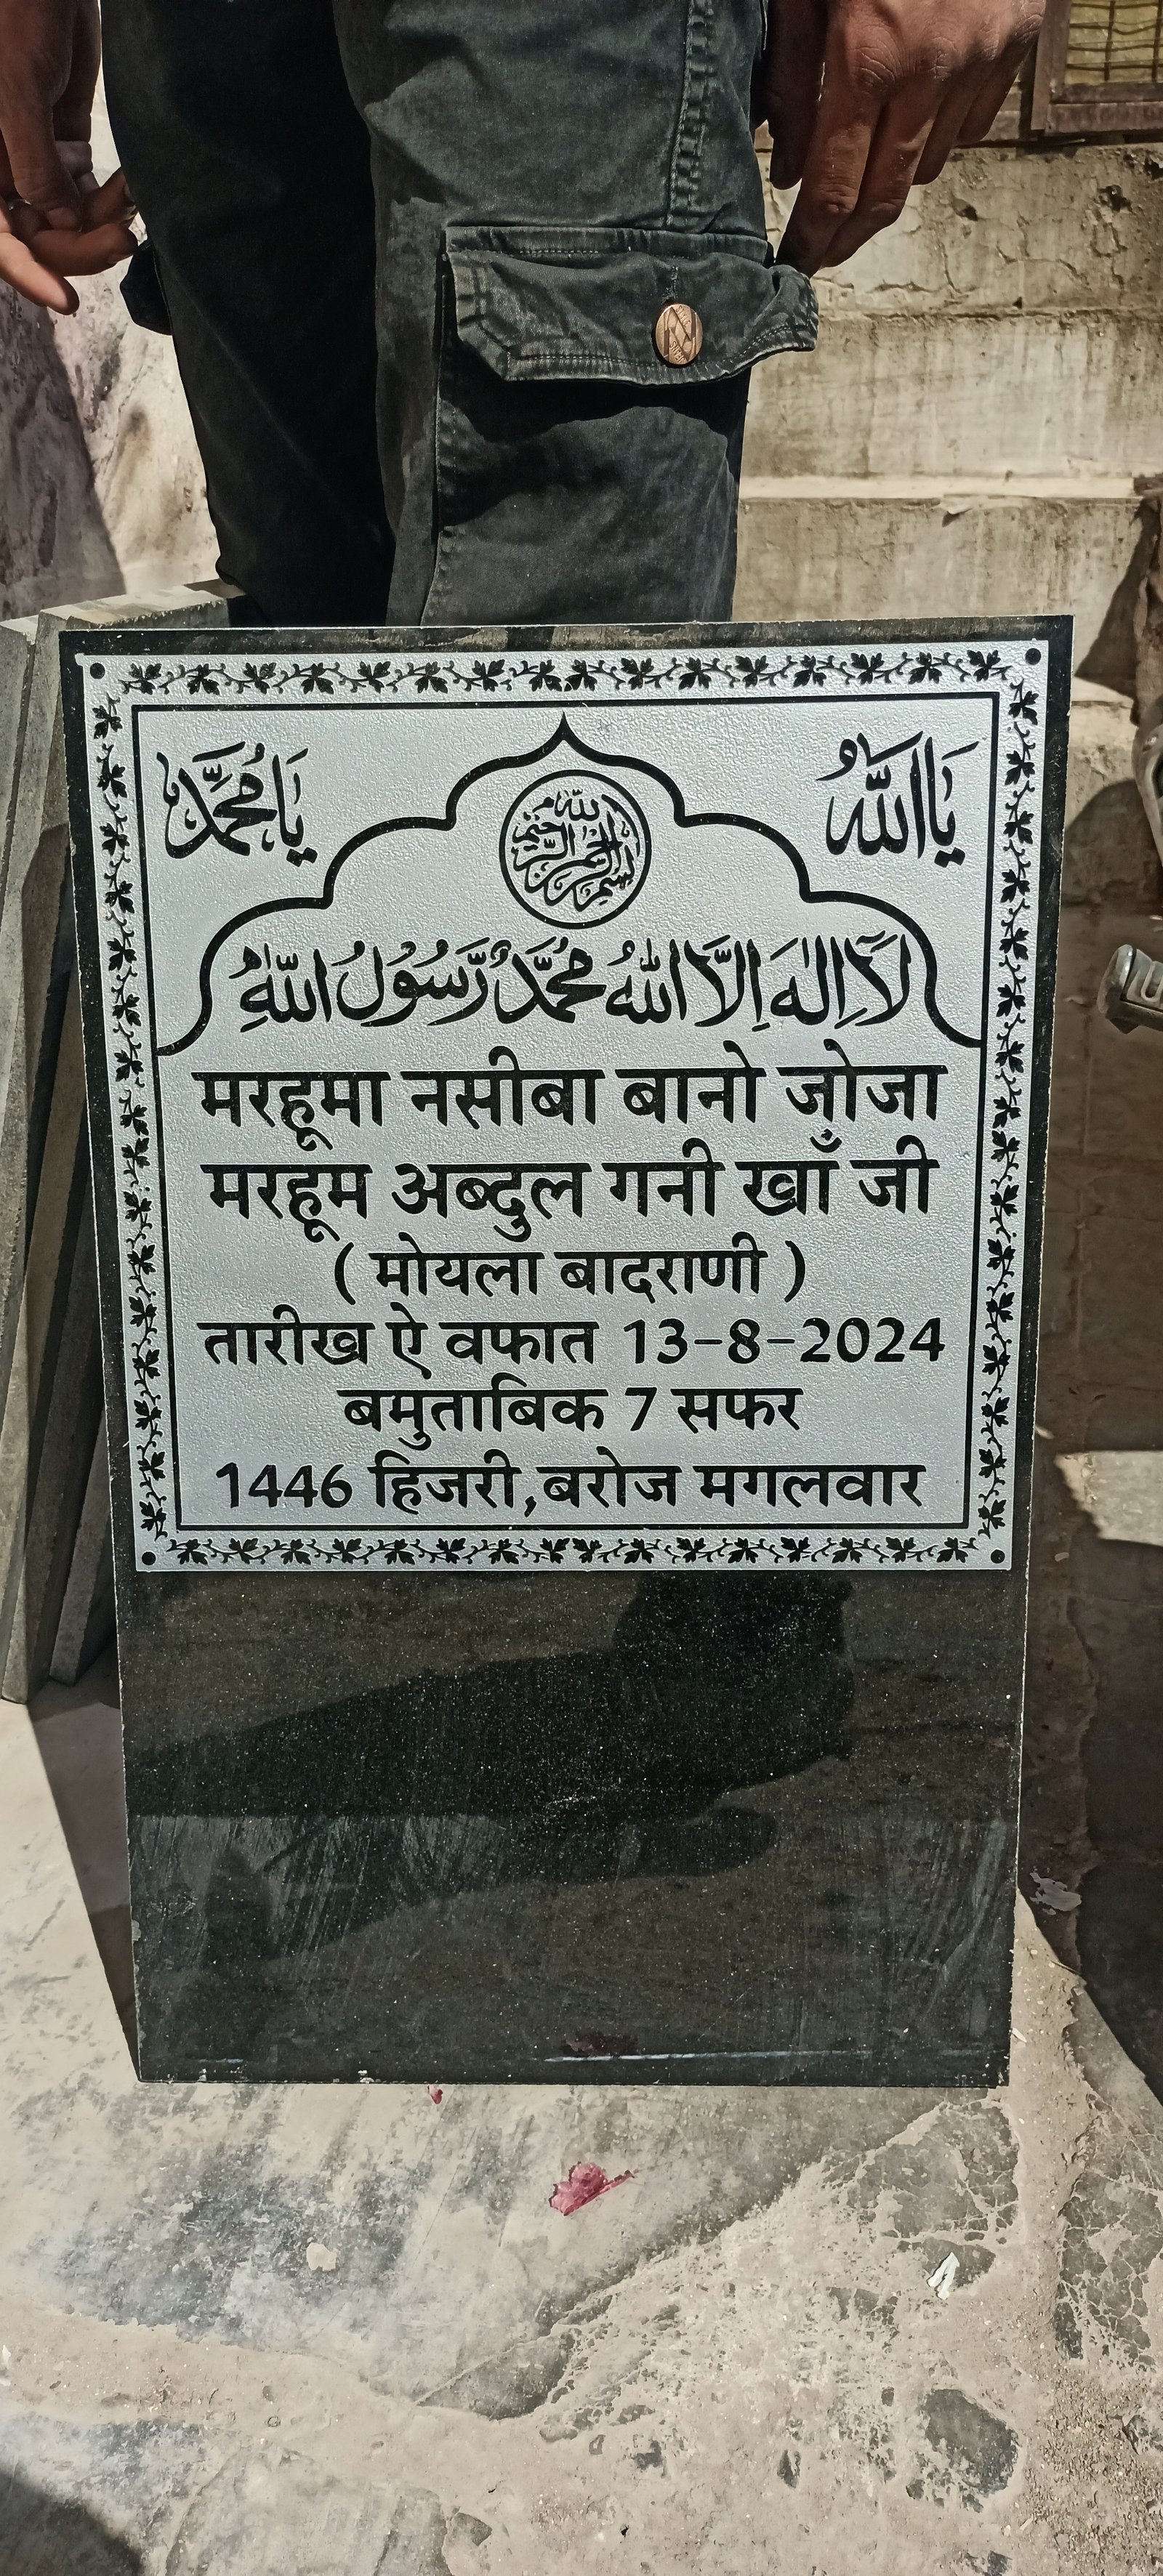 يَا اللّٰهُ
يَا مُحَمَّد
بسم الله الرحمن الرحيم
لَا اِلٰهَ اِلَّا اللّٰهُ مُحَمَّدٌ رَّسُوْلُ اللّٰهِ
मरहूमा नसीबा बानो जोजा
मरहूम अब्दुल गनी खाँ जी
( मोयला बादराणी )
तारीख ऐ वफात 13-8-2024
बमुताबिक 7 सफर
1446 हिजरी,बरोज मगलवार